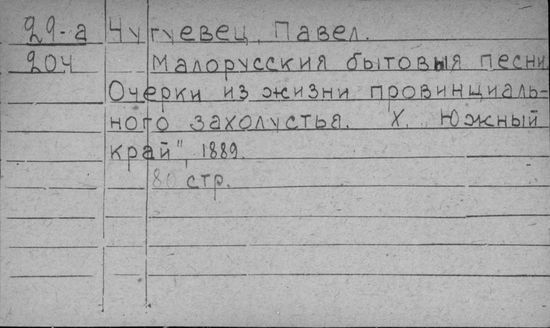 29-а Чугуевец, Павел.
204 Малорусския бытовыя песни
Очерки из жизни провинциаль-
ного захолустья. Х. „Южный
край", 1889.
80 стр.